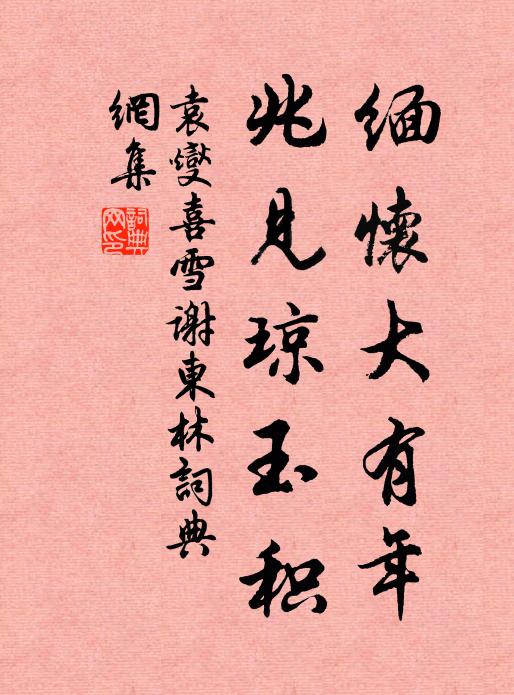 缅懷大有年
兆見琼玉积
袁燮喜雪謝東林詞典
網集
詞典網印